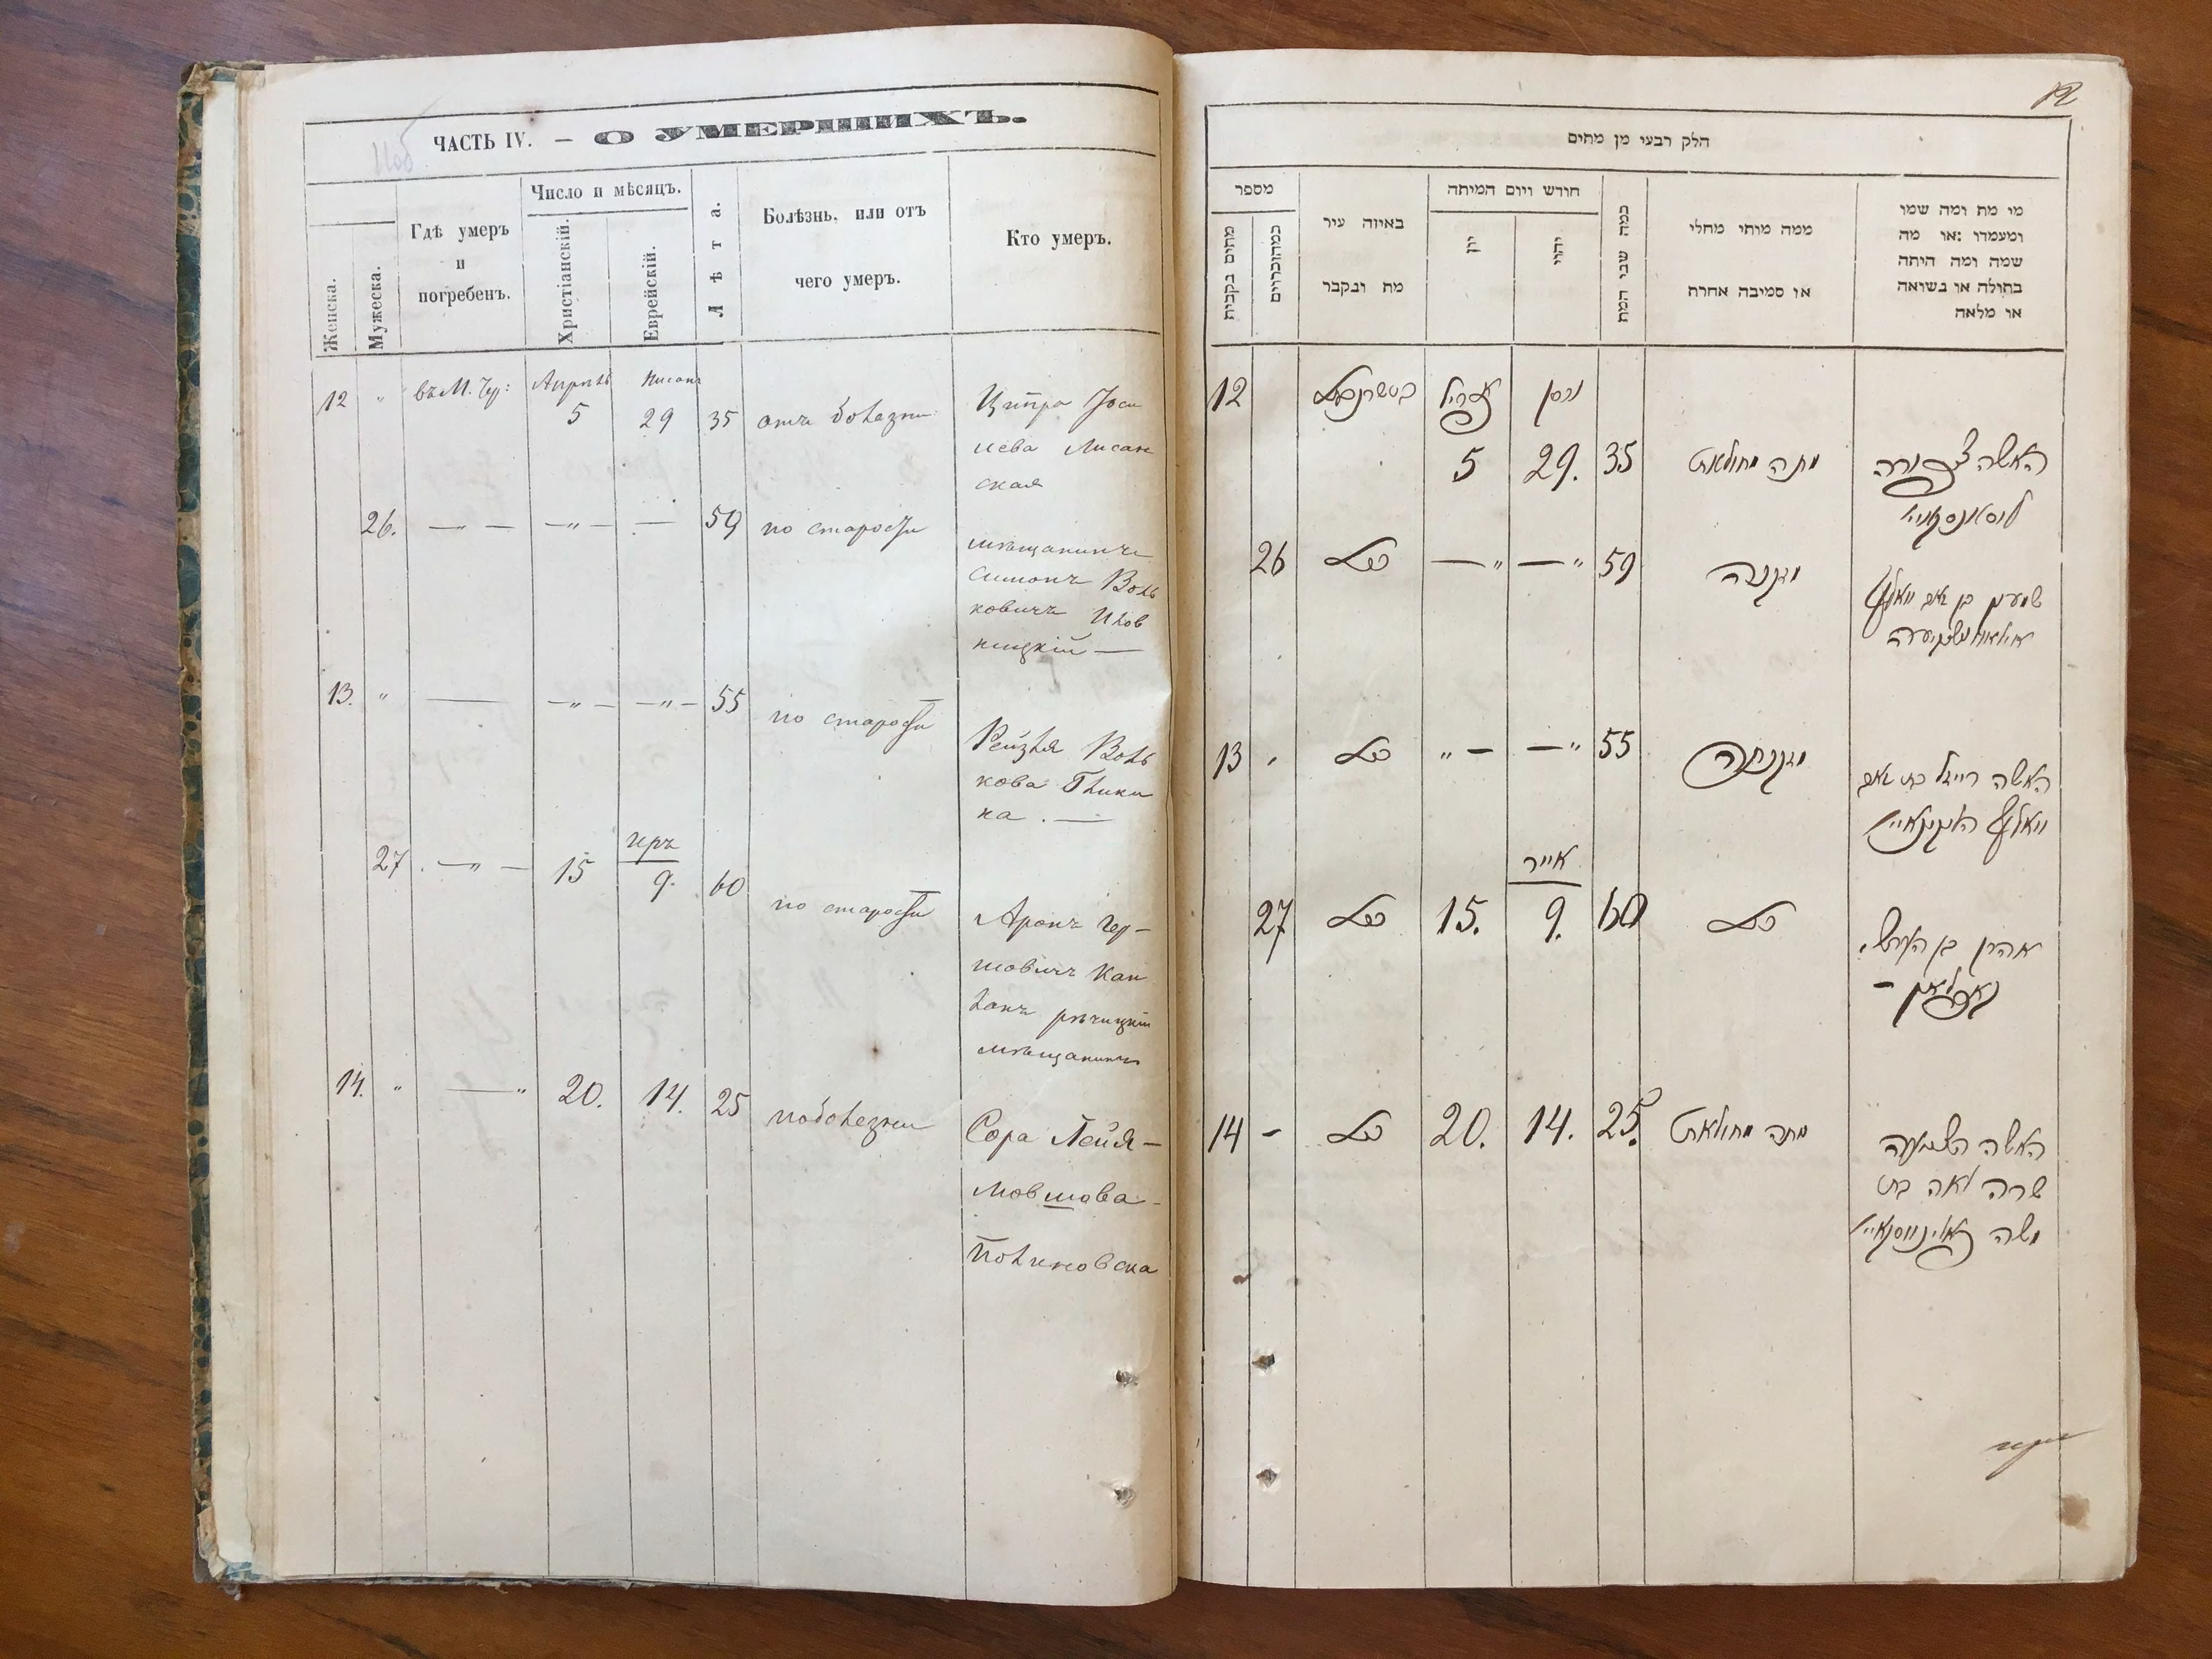 ЧАСТЬ IV. — О УМЕРШИХЪ.
Женска.
Мужеска.
Гдѣ умеръ
и
погребенъ.
Число и мѣсяцъ.
Христіанскій.
Еврейскій.
Лѣта.
Болѣзнь, или отъ
чего умеръ.
Кто умеръ.
12 " въ М. Чер: Апрѣль 5 Нисанъ 29 35 отъ болезни
Ципра Іоси
лева Лисан
ская
26. — " — — " — — 59 по старости
мѣщанинъ
Симонъ Воль
ковичъ
13. " — — " — — " — 55 по старости
Рейзля Воль
кова Глики
на. —
27. — " — 15 иръ 9. 60 по старости
Аронъ Гер-
шовичъ Кап
ланъ рѣчицкій
мѣщанинъ
14. " — " 20. 14. 25 по болезни
Сора Лейя —
Мовшова —
Полиновска
12
חלק רבעי מן מתים
מספר
מתים בנקבות
במהזכרים
באיזה עיר
מת ונקבר
חודש ויום המיתה
יון
יהוי
כמה שני המת
ממה מותי מחלי
או סמיבה אחרת
מי מת ומה שמו
ומעמדו :או מה
שמה ומה היתה
בתולה או נשואה
או מלאה
12 אפריל ניסן
5 29. 35 מתה מחולאת האשה צפורה
26 כנ"ל — " — " 59 מזקנה
שמעון בן וואלף
13 , כנ"ל " — — " 55 מזקנתה
האשה רייזל בת
וואלף
אייר
27 כנ"ל 15. 9. 60 כנ"ל
אהרן בן הירש
קאפלאן —
14 - כנ"ל 20. 14. 25. מתה מחולאת
האשה
שרה לאה בת
משה